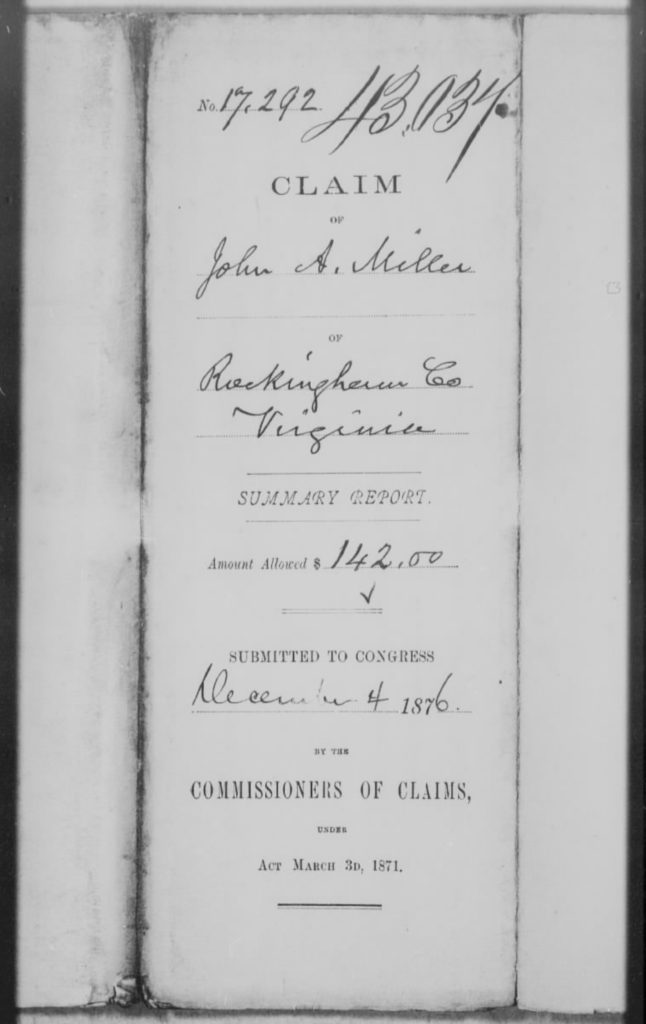 No. 17,292. 43,037
CLAIM
OF
John A. Miller
OF
Rockingham Co
Virginia
SUMMARY REPORT.
Amount Allowed $ 142.00
SUBMITTED TO CONGRESS
December 4 1876.
BY THE
COMMISSIONERS OF CLAIMS,
UNDER
ACT MARCH 3D, 1871.